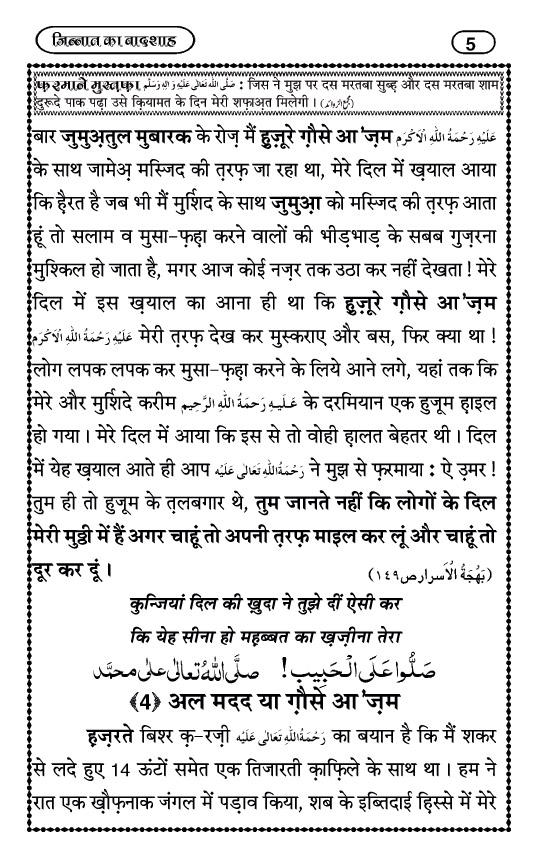 जिन्नात का बादशाह
5
फ़रमाने मुस्तफ़ा صَلَّى اللهُ تَعَالٰى عَلَيْهِ وَاٰلِهٖ وَسَلَّم : जिस ने मुझ पर दस मरतबा सुब्ह और दस मरतबा शाम
दुरूदे पाक पढ़ा उसे क़ियामत के दिन मेरी शफ़ाअत मिलेगी ।
बार जुमुअ़तुल मुबारक के रोज़ मैं हुज़ूरे ग़ौसे आ'ज़म عَلَيْهِ رَحْمَةُ اللهِ الْاَكْرَم
के साथ जामेअ़ मस्जिद की त़रफ़ जा रहा था, मेरे दिल में ख़याल आया
कि ह़ैरत है जब भी मैं मुर्शिद के साथ जुमुआ़ को मस्जिद की त़रफ़ आता
हूं तो सलाम व मुसा-फ़ह़ा करने वालों की भीड़भाड़ के सबब गुज़रना
मुश्किल हो जाता है, मगर आज कोई नज़र तक उठा कर नहीं देखता ! मेरे
दिल में इस ख़याल का आना ही था कि हुज़ूरे ग़ौसे आ'ज़म
عَلَيْهِ رَحْمَةُ اللهِ الْاَكْرَم मेरी त़रफ़ देख कर मुस्कराए और बस, फिर क्या था !
लोग लपक लपक कर मुसा-फ़ह़ा करने के लिये आने लगे, यहां तक कि
मेरे और मुर्शिदे करीम عَلَيْهِ رَحمَةُ اللهِ الرَّحِيم के दरमियान एक हुजूम ह़ाइल
हो गया । मेरे दिल में आया कि इस से तो वोही ह़ालत बेहतर थी । दिल
में येह ख़याल आते ही आप رَحْمَةُ اللهِ تَعَالٰى عَلَيْه ने मुझ से फ़रमाया : ऐ उ़मर !
तुम ही तो हुजूम के त़लबगार थे, तुम जानते नहीं कि लोगों के दिल
मेरी मुठ्ठी में हैं अगर चाहूं तो अपनी त़रफ़ माइल कर लूं और चाहूं तो
दूर कर दूं । (بَهْجَةُ الْاَسرار ص١٤٩)
कुन्जियां दिल की ख़ुदा ने तुझे दीं ऐसी कर
कि येह सीना हो मह़ब्बत का ख़ज़ीना तेरा
صَلُّوا عَلَى الْحَبِيب ! صلَّى اللهُ تعالى على محمَّد
﴾4﴿ अल मदद या ग़ौसे आ'ज़म
ह़ज़रते बिश्र क़-रज़ी رَحْمَةُ اللهِ تَعَالٰى عَلَيْه का बयान है कि मैं शकर
से लदे हुए 14 ऊंटों समेत एक तिजारती क़ाफ़िले के साथ था । हम ने
रात एक ख़ौफ़नाक जंगल में पड़ाव किया, शब के इब्तिदाई ह़िस्से में मेरे